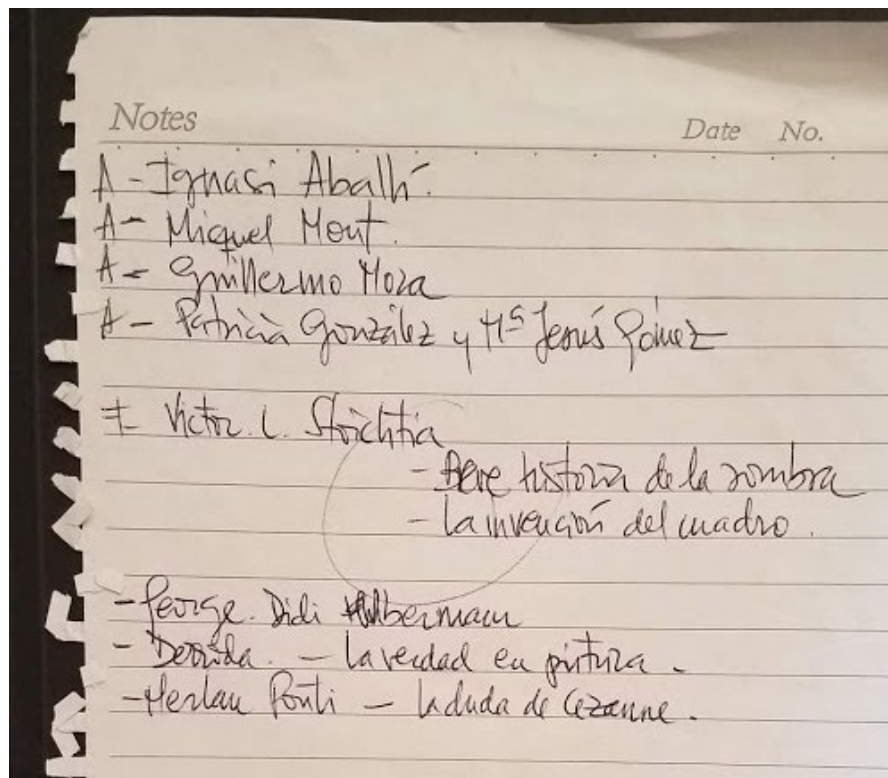 Notes
Date No.
A - Ignasi Aballí.
A - Miquel Mont.
A - Guillermo Mora
A - Patricia González y Mª Jesús Gómez
Victor. L. Stoichtia
- Breve historia de la sombra
- La invención del cuadro.
- George. Didi Hubermann
- Derrida. - La verdad en pintura.
- Merlau Ponti - La duda de Cezanne.